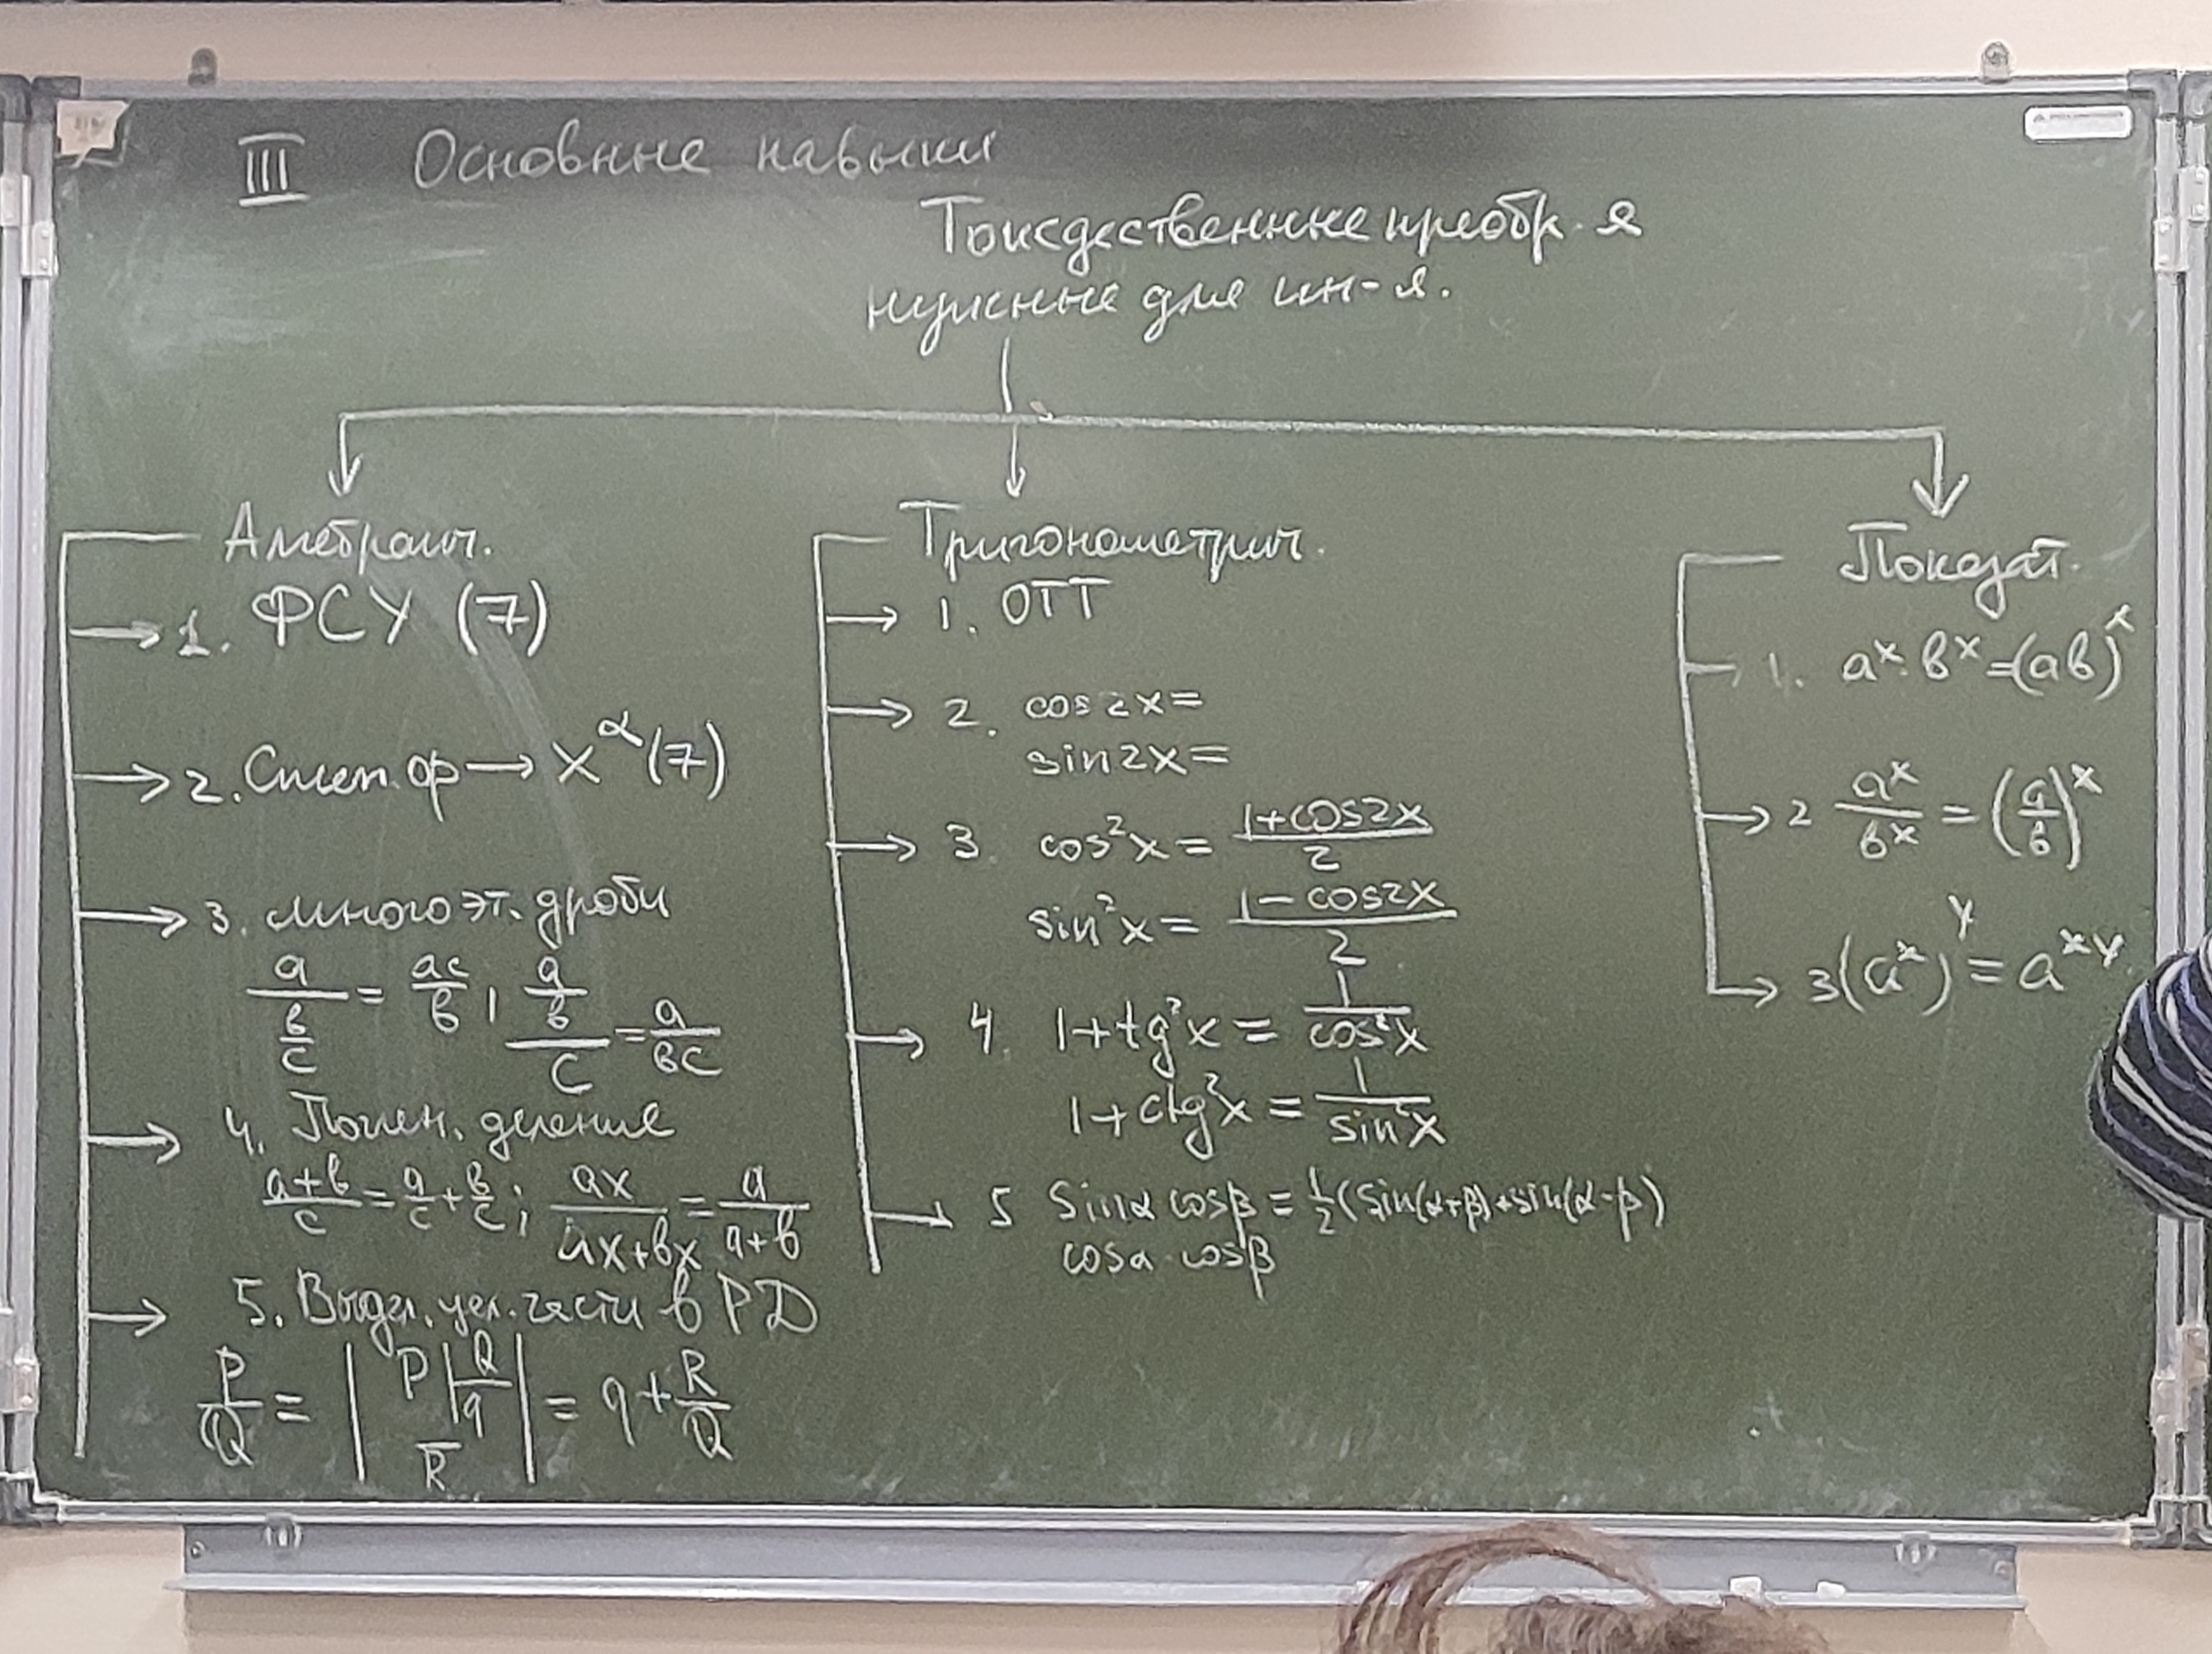 III Основные навыки
Тождественные преобр-я
нужные для ин-я.
Алгебраич.
1. ФСУ (7)
2. Степ. ф → x^α (7)
3. многоэт. дроби
a/(b/c) = ac/b ; (a/b)/c = a/(bc)
4. Почлен. деление
(a+b)/c = a/c + b/c ; ax/(ax+bx) = a/(a+b)
5. Выдел. цел. части в РД
P/Q = | P |Q q R | = q + R/Q
Тригонометрич.
1. ОТТ
2. cos2x =
sin2x =
3. cos²x = (1+cos2x)/2
sin²x = (1-cos2x)/2
4 1+tg²x = 1/cos²x
1+ctg²x = 1/sin²x
5 Sinα cosβ = ½(Sin(α+β)+sin(α-β)
cosα·cosβ
Показат.
1. a^x · b^x = (ab)^x
2 a^x/b^x = (a/b)^x
3 (a^x)^y = a^xy